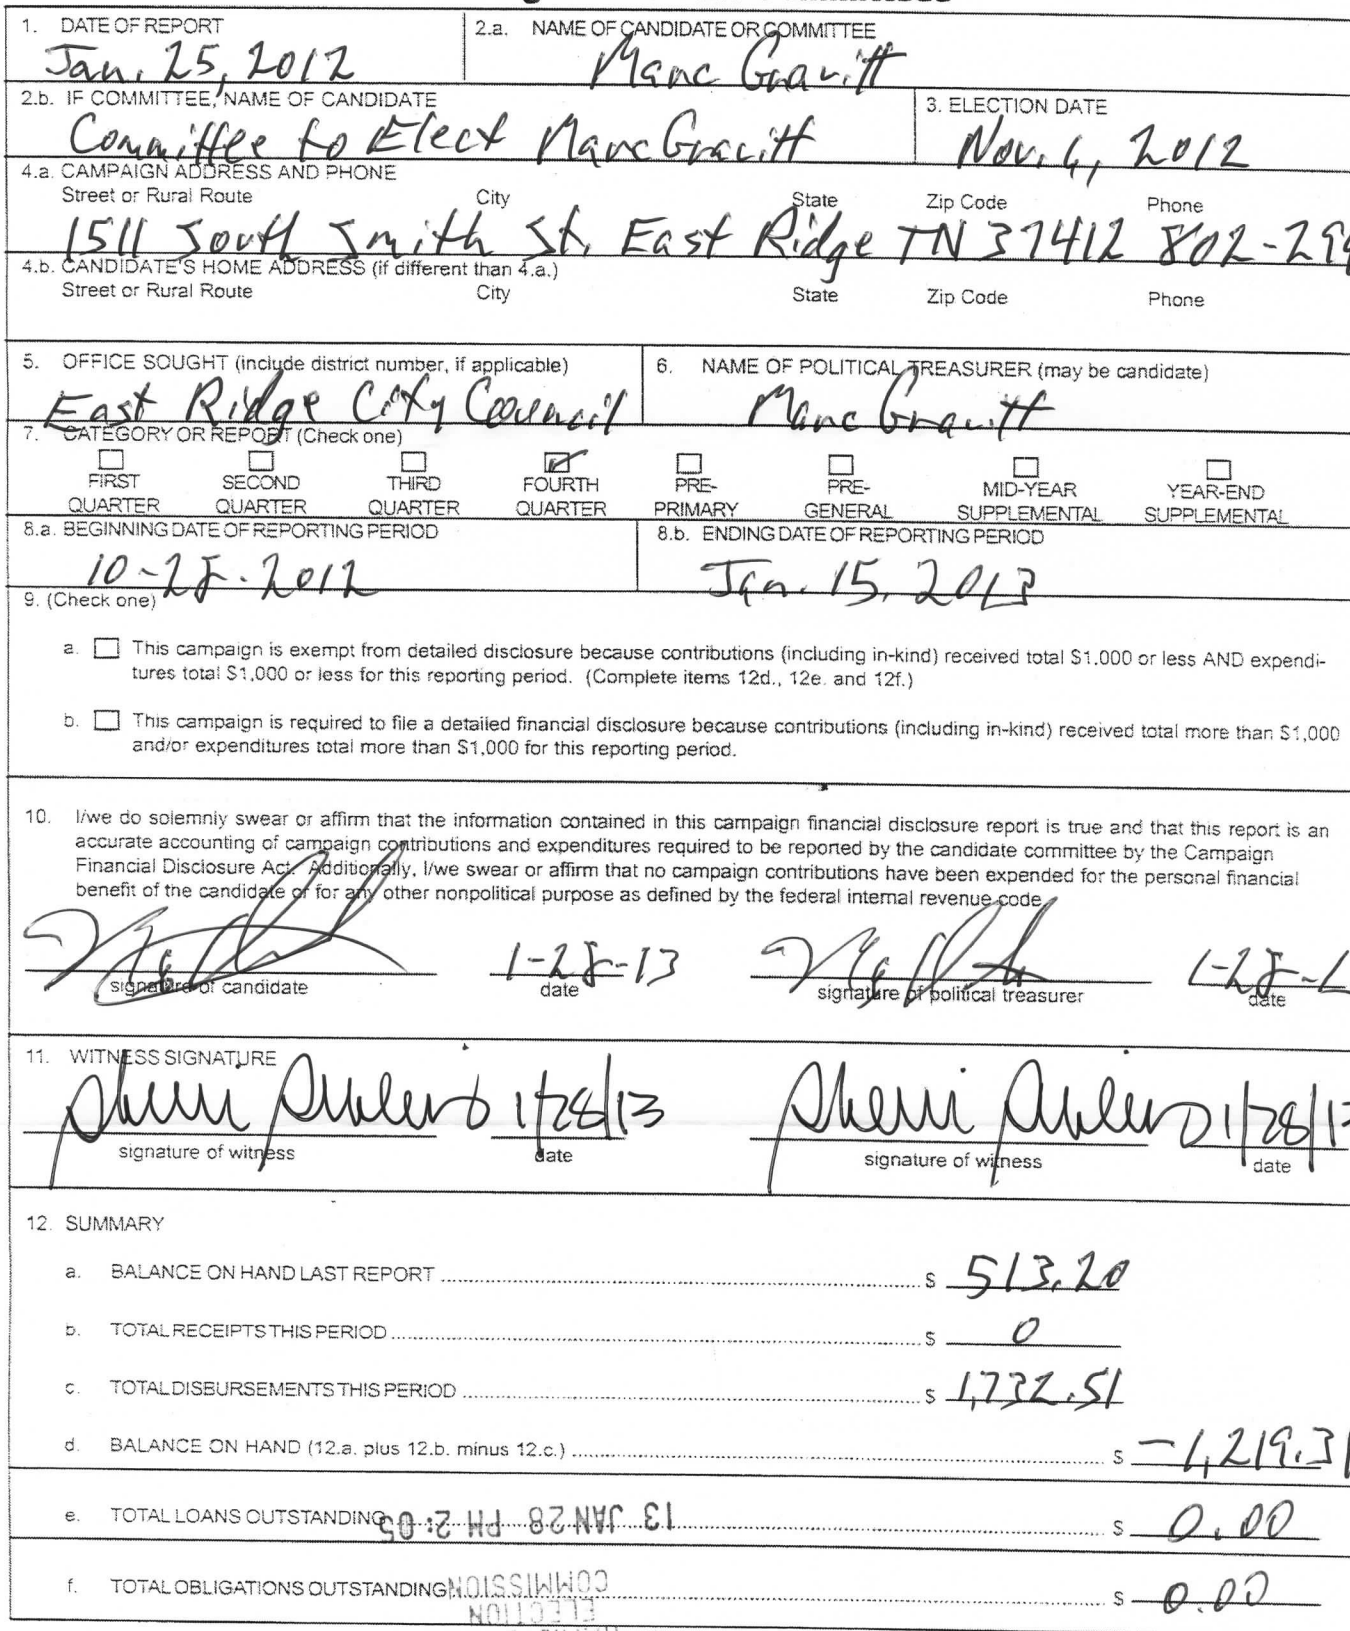 1. DATE OF REPORT
Jan. 25, 2012
2.a. NAME OF CANDIDATE OR COMMITTEE
Marc Gravitt
2.b. IF COMMITTEE, NAME OF CANDIDATE
Committee to Elect Marc Gravitt
3. ELECTION DATE
Nov. 6, 2012
4.a. CAMPAIGN ADDRESS AND PHONE
Street or Rural Route City State Zip Code Phone
1511 South Smith St. East Ridge TN 37412 802-29
4.b. CANDIDATE'S HOME ADDRESS (if different than 4.a.)
Street or Rural Route City State Zip Code Phone
5. OFFICE SOUGHT (include district number, if applicable)
East Ridge City Council
6. NAME OF POLITICAL TREASURER (may be candidate)
Marc Gravitt
7. CATEGORY OR REPORT (Check one)
FIRST QUARTER
SECOND QUARTER
THIRD QUARTER
FOURTH QUARTER
PRE-PRIMARY
PRE-GENERAL
MID-YEAR SUPPLEMENTAL
YEAR-END SUPPLEMENTAL
8.a. BEGINNING DATE OF REPORTING PERIOD
10-28-2012
8.b. ENDING DATE OF REPORTING PERIOD
Jan. 15, 2013
9. (Check one)
a. This campaign is exempt from detailed disclosure because contributions (including in-kind) received total $1,000 or less AND expendi-
tures total $1,000 or less for this reporting period. (Complete items 12d., 12e. and 12f.)
b. This campaign is required to file a detailed financial disclosure because contributions (including in-kind) received total more than $1,000
and/or expenditures total more than $1,000 for this reporting period.
10. I/we do solemnly swear or affirm that the information contained in this campaign financial disclosure report is true and that this report is an
accurate accounting of campaign contributions and expenditures required to be reported by the candidate committee by the Campaign
Financial Disclosure Act. Additionally, I/we swear or affirm that no campaign contributions have been expended for the personal financial
benefit of the candidate or for any other nonpolitical purpose as defined by the federal internal revenue code.
1-28-13 1-28-1
signature of candidate date signature of political treasurer date
11. WITNESS SIGNATURE
1/28/13 Sherri 1/28/13
signature of witness date signature of witness date
12. SUMMARY
a. BALANCE ON HAND LAST REPORT $ 513.20
b. TOTAL RECEIPTS THIS PERIOD $ 0
c. TOTAL DISBURSEMENTS THIS PERIOD $ 1,732.51
d. BALANCE ON HAND (12.a. plus 12.b. minus 12.c.) $ -1,219.31
e. TOTAL LOANS OUTSTANDING $ 0.00
13 JAN 28 PM 2:05
f. TOTAL OBLIGATIONS OUTSTANDING $ 0.00
COMMISSION
ELECTION